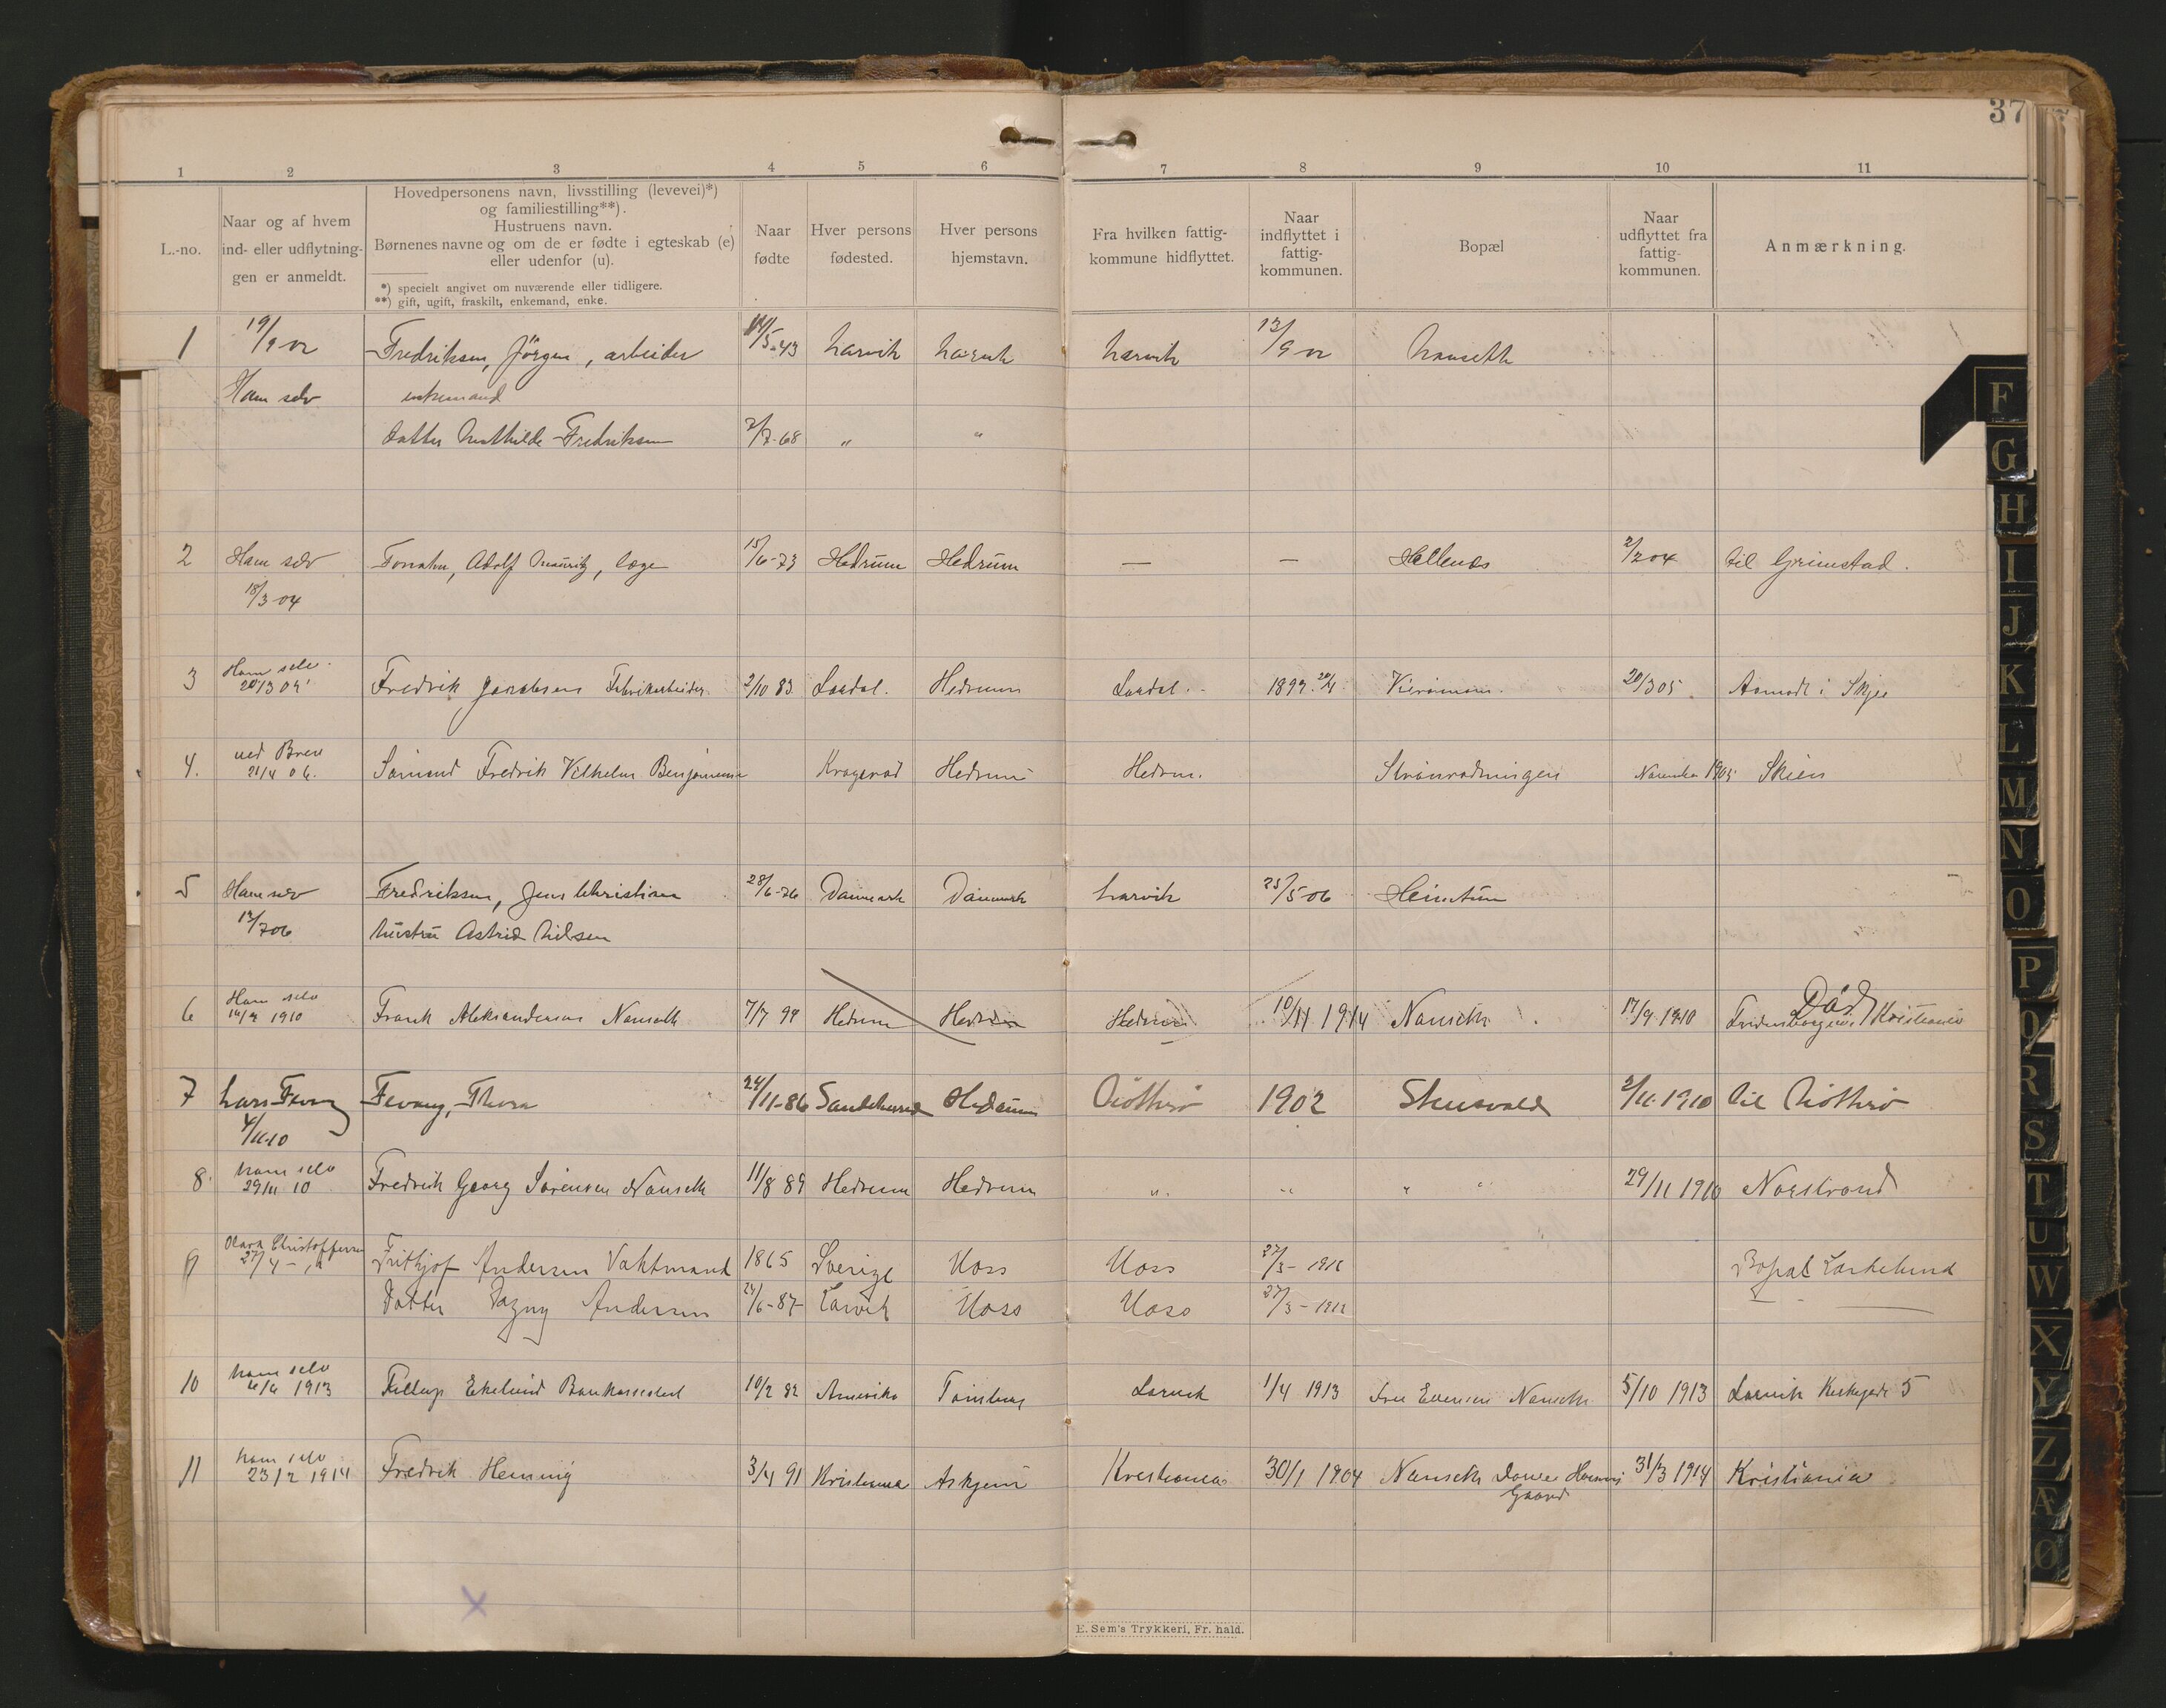 37
1 2 3 4 5 6 7 8 9 10 11
L.-no.
Naar og af hvem
ind- eller udflytnin-
gen er anmeldt.
Hovedpersonens navn, livsstilling (levevei)*)
og familiestilling**).
Hustruens navn.
Børnenes navne og om de er fødte i egteskab (e)
eller udenfor (u).
*) specielt angivet om nuværende eller tidligere.
**) gift, ugift, fraskilt, enkemand, enke.
Naar
fødte
Hver persons
fødested.
Hver persons
hjemstavn.
Fra hvilken fattig-
kommune hidflyttet.
Naar
indflyttet i
fattig-
kommunen.
Bopæl
Naar
udflyttet fra
fattig-
kommunen.
Anmærkning.
1 19/9 02 Fredriksen, Jörgen, arbeider 5-43 Larvik Larvik Larvik 13/9 02 Nanseth
Ham selv enkemand
datter Mathilde Fredriksen 2/7-68 „ „
2 Ham selv Fonahn, Adolf Mauritz, læge 15/6-73 Hedrum Hedrum — — Hellenes 2/2 04 til Grimstad.
18/3 04
3 Ham selv Fredrik Jacobsen Fabrikarbeider 2/10 83 Lardal. Hedrum Lardal. 1899 20/3 05 i Skjee
20/3 05
4. ved Brev Fredrik Vilhelm Benjaminsen Hedrum Hedrum. November 1905 Skien
21/4 06.
5 Ham selv Fredriksen, Jens Christian 28/6-76 Danmark Danmark Larvik 25/5-06
13/7 06 hustru Astrid Nilsen
6 Ham selv Frank Aleksandersen Nanseth 7/7 94 Hedrum Hedrum Hedrum 10/11 1914 Nanseth 17/9 1910 Kristiania
1910 Död
7 Lars Fevang Fevang, Thora 24/11-86 Sandeherred Hedrum Nötterö 1902 Stusvald 2/11-1910 til Nötterö
4/11-10
8. ham selv Fredrik Georg Sörensen Nanseth 11/8 89 Hedrum Hedrum „ „ „ „ 29/11 1910 Norstrand
29/11 10
9 Olava Christoffersen Frithjof Andersen Vaktmand 1865 Sverige Moss Moss 27/3-1912 Bopæl
27/4 -
Datter Dagny Andersen 24/6-87- Larvik Moss Moss 27/3-1912
10 ham selv Fillup Ekelund 10/2 82 Amerika Tönsberg Larvik 1/4 1913 Nanseth 5/10 1913 Larvik Kirkegade 5
4/4 1913
11 ham selv Fredrik Henning 3/4 91 Kristiania Askjem Kristiania 30/1 1904 Nanseth 31/3 1914 Kristiania
23/2 1914 Gaard
E. Sem's Trykkeri, Fr. hald.
F
G
H
I
J
K
L
M
N
O
P
Q
R
S
T
U
W
X
Y
Z
Æ
Ø